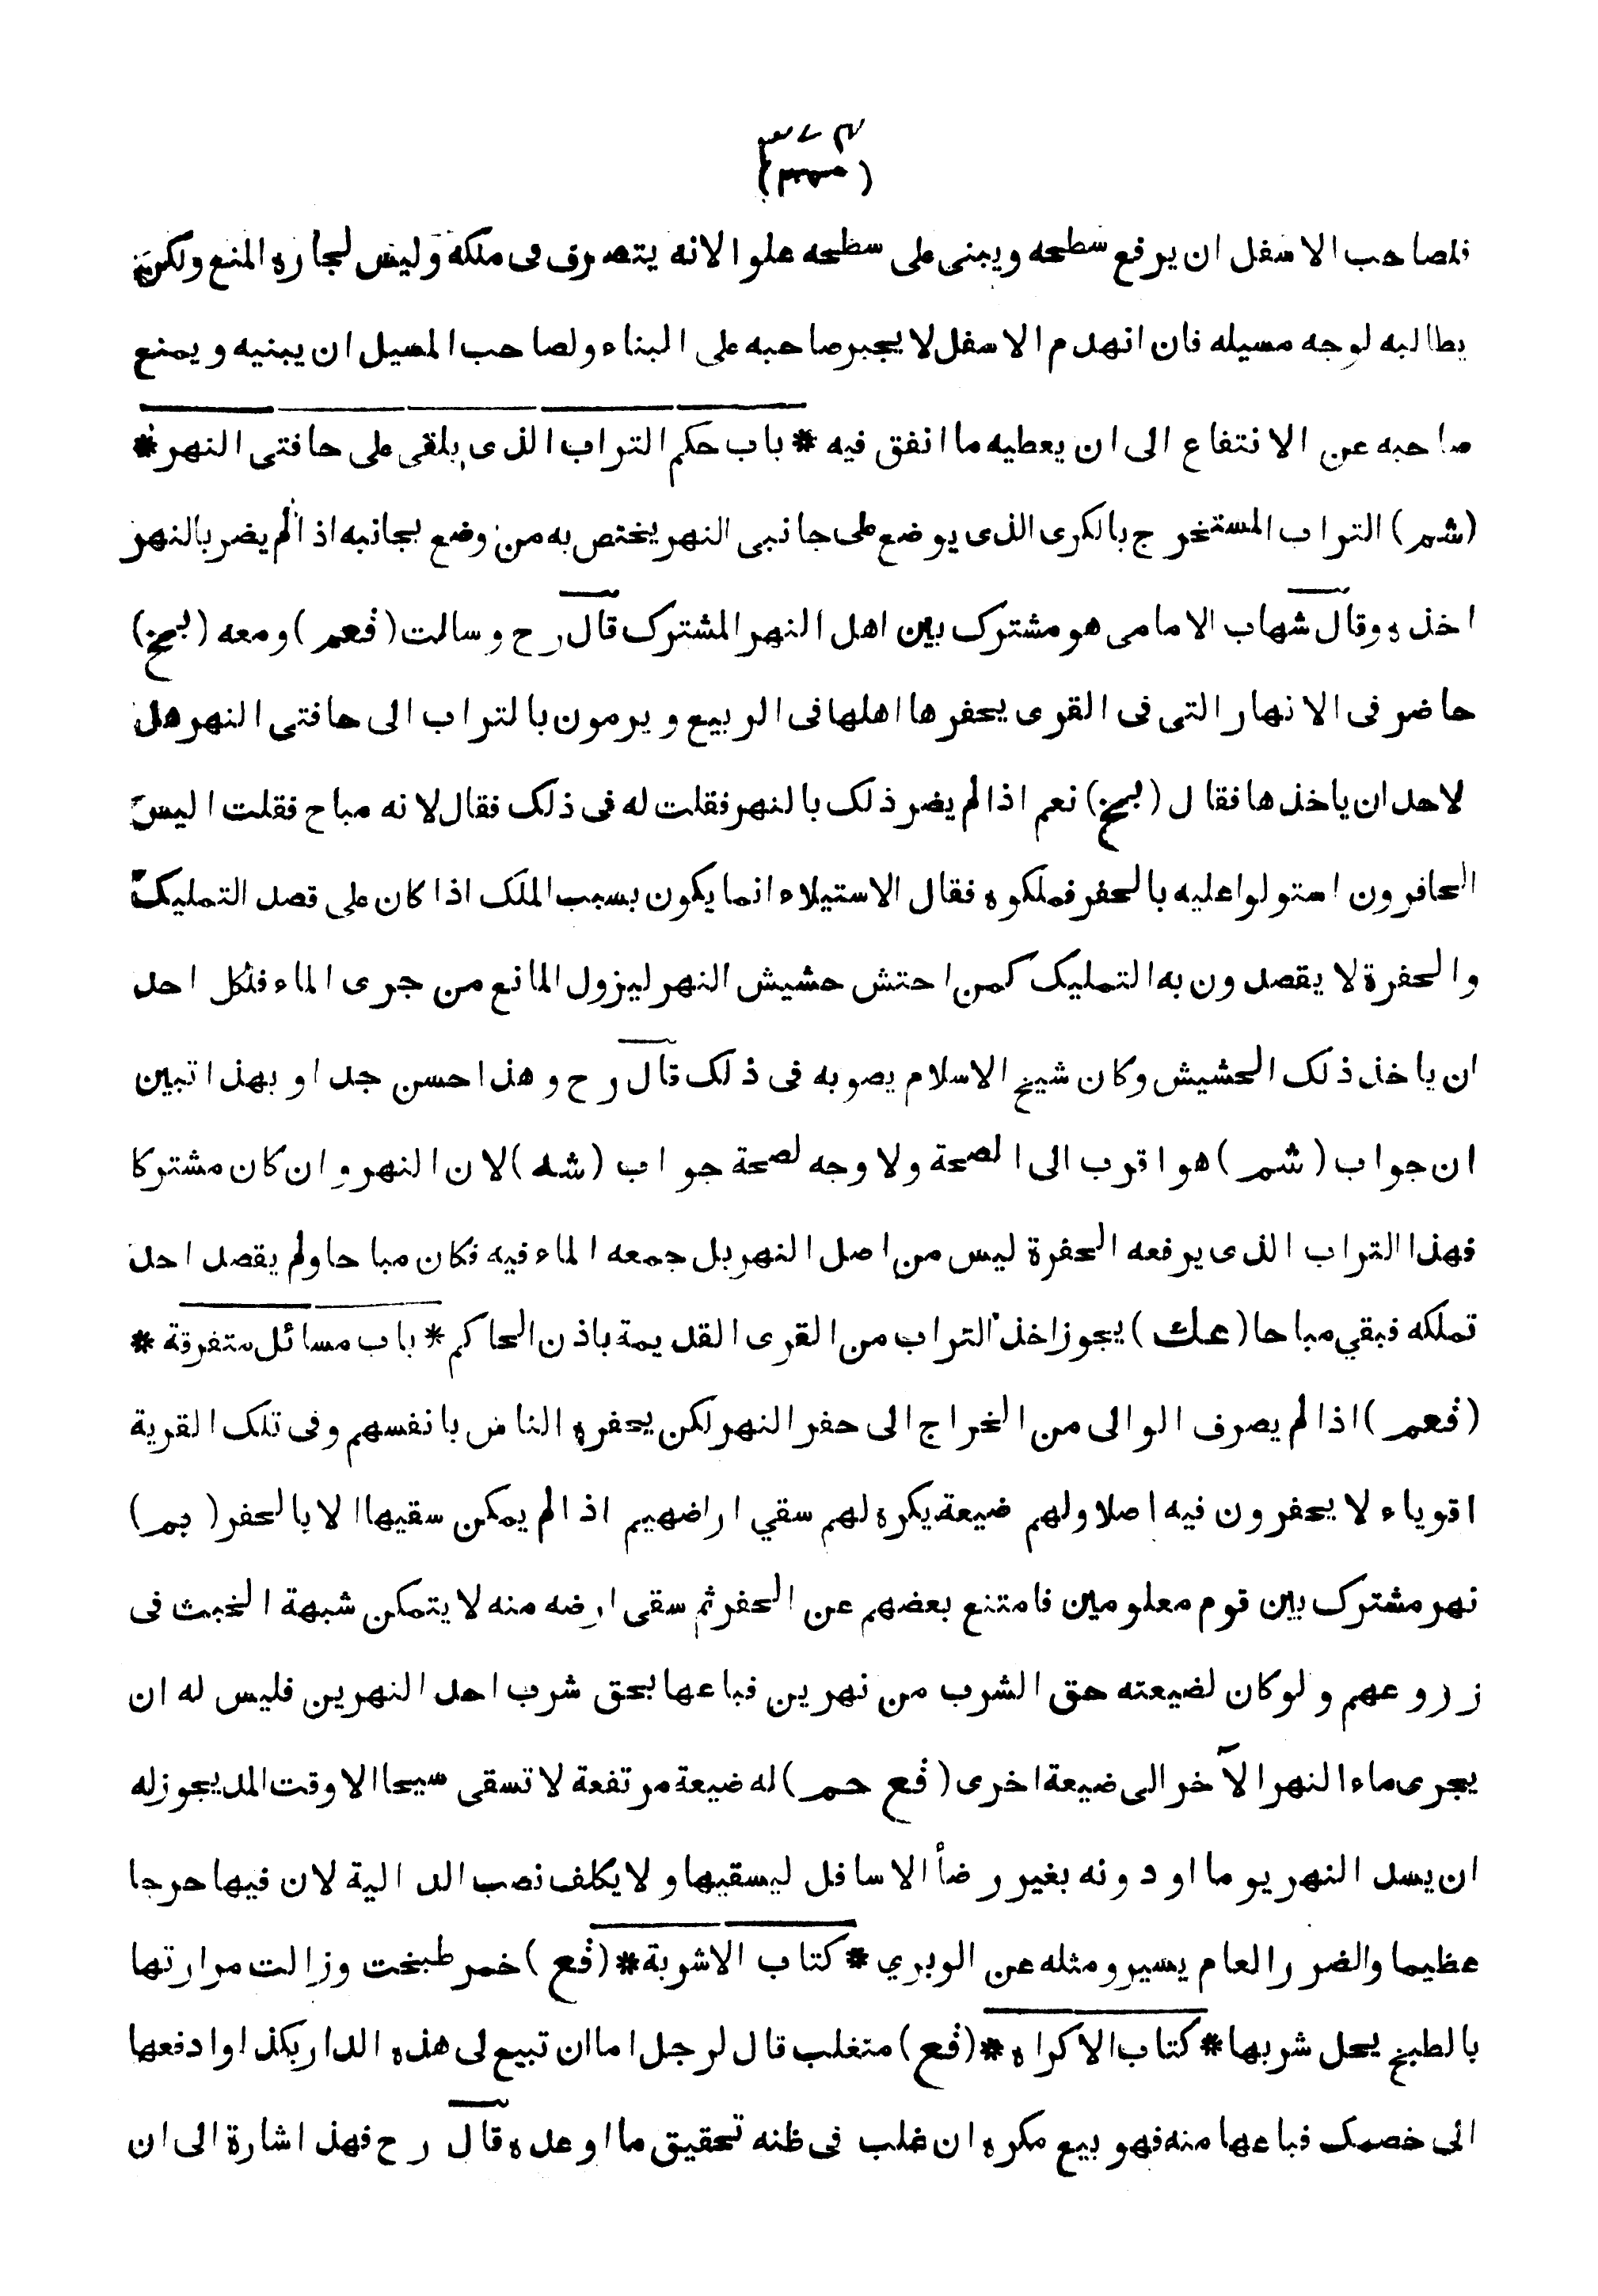 فلصاحب الاسفل ان يرفع سطحه ويبنى على سطحه علوا لانه يتصرف فى ملكه وليس لجاره المنع ولكن
يطالبه لوجه مسيله فان انهدم الاسفل لا يجبر صاحبه على البناء ولصاحب المسيل ان يبنيه ويمنع
صاحبه عن الانتفاع الى ان يعطيه ما انفق فيه * باب حكم التراب الذى يلقى على حافتى النهر *
(شم) التراب المستخرج بالكرى الذى يوضع على جانبى النهر يختص به من وضع بجانبه اذا لم يضر بالنهر
اخذه وقال شهاب الامامى هو مشترك بين اهل النهر المشترك قال رح وسالت (فعم) ومعه (بمخ)
حاضر فى الانهار التى فى القرى يحفرها اهلها فى الربيع ويرمون بالتراب الى حافتى النهر هل
لاحد ان ياخذها فقال (بمخ) نعم اذا لم يضر ذلك بالنهر فقلت له فى ذلك فقال لانه مباح فقلت اليس
الحافرون استولوا عليه بالحفر فملكوه فقال الاستيلاء انما يكون بسبب الملك اذا كان على قصد التمليك
والحفرة لا يقصدون به التمليك كمن احتش حشيش النهر ليزول المانع من جرى الماء فلكل احد
ان ياخذ ذلك الحشيش وكان شيخ الاسلام يصوبه فى ذلك قال رح وهذا حسن جدا وبهذا تبين
ان جواب (شم) هو اقرب الى الصحة ولا وجه لصحة جواب (شه) لان النهر وان كان مشتركا
فهذا التراب الذى يرفعه الحفرة ليس من اصل النهر بل جمعه الماء فيه فكان مباحا ولم يقصد احد
تملكه فبقي مباحا (عك) يجوز اخذ التراب من القرى القديمة باذن الحاكم * باب مسائل متفرقة *
(فعم) اذا لم يصرف الوالى من الخراج الى حفر النهر لكن يحفره الناس بانفسهم وفى تلك القرية
اقوياء لا يحفرون فيه اصلا ولهم ضيعة يكره لهم سقي اراضهيم اذا لم يمكن سقيها الا بالحفر (بم)
نهر مشترك بين قوم معلومين فامتنع بعضهم عن الحفر ثم سقى ارضه منه لا يتمكن شبهة الخبث فى
زروعهم ولو كان لضيعته حق الشرب من نهرين فباعها بحق شرب احد النهرين فليس له ان
يجرى ماء النهر الآخر الى ضيعة اخرى (فع حم) له ضيعة مرتفعة لا تسقى سيحا الا وقت المد يجوز له
ان يسد النهر يوما او دونه بغير رضأ الاسافل ليسقيها ولا يكلف نصب الدالية لان فيها حرجا
عظيما والضرر العام يسير ومثله عن الوبري * كتاب الاشربة * (فع) خمر طبخت وزالت مرارتها
بالطبخ يحل شربها * كتاب الاكراه * (فع) متغلب قال لرجل اما ان تبيع لى هذه الدار بكذا او ادفعها
الى خصمك فباعها منه فهو بيع مكره ان غلب فى ظنه تحقيق ما اوعده قال رح فهذ اشارة الى ان